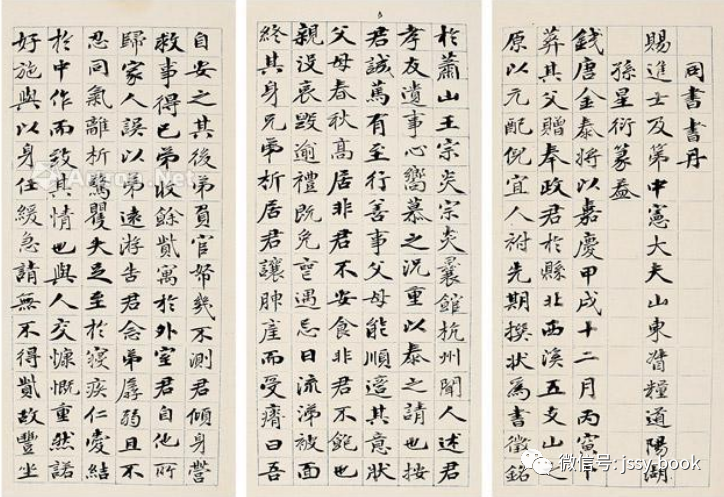 同書書丹
賜進士及第中憲大夫山東督糧道陽湖
孫星衍篆蓋
錢唐金泰將以嘉慶甲戌十二月丙寅卜
葬其父贈奉政君於縣北西溪五支山之
原以元配倪宜人祔先期撰狀為書徵銘
於蕭山王宗炎宗炎曩館杭州聞人述君
孝友遺事心嚮慕之況重以泰之請也按
君誠篤有至行善事父母能順適其意狀
父母春秋高居非君不安食非君不飽也
親没哀毀逾禮既免喪遇忌日流涕被面
終其身兄弟析居君讓腴產而受瘠曰吾
自安之其後弟員官帑幾不測君傾身營
救事得已弟收餘貲寓於外室君自他所
歸家人誤以弟遠游告君念弟孱弱且不
忍同氣離析驚瞿失足至於寢疾仁愛結
於中作而致其情也與人交慷慨重然諾
好施與以身任緩急請無不得貲故豐坐
微信号: jssy.book